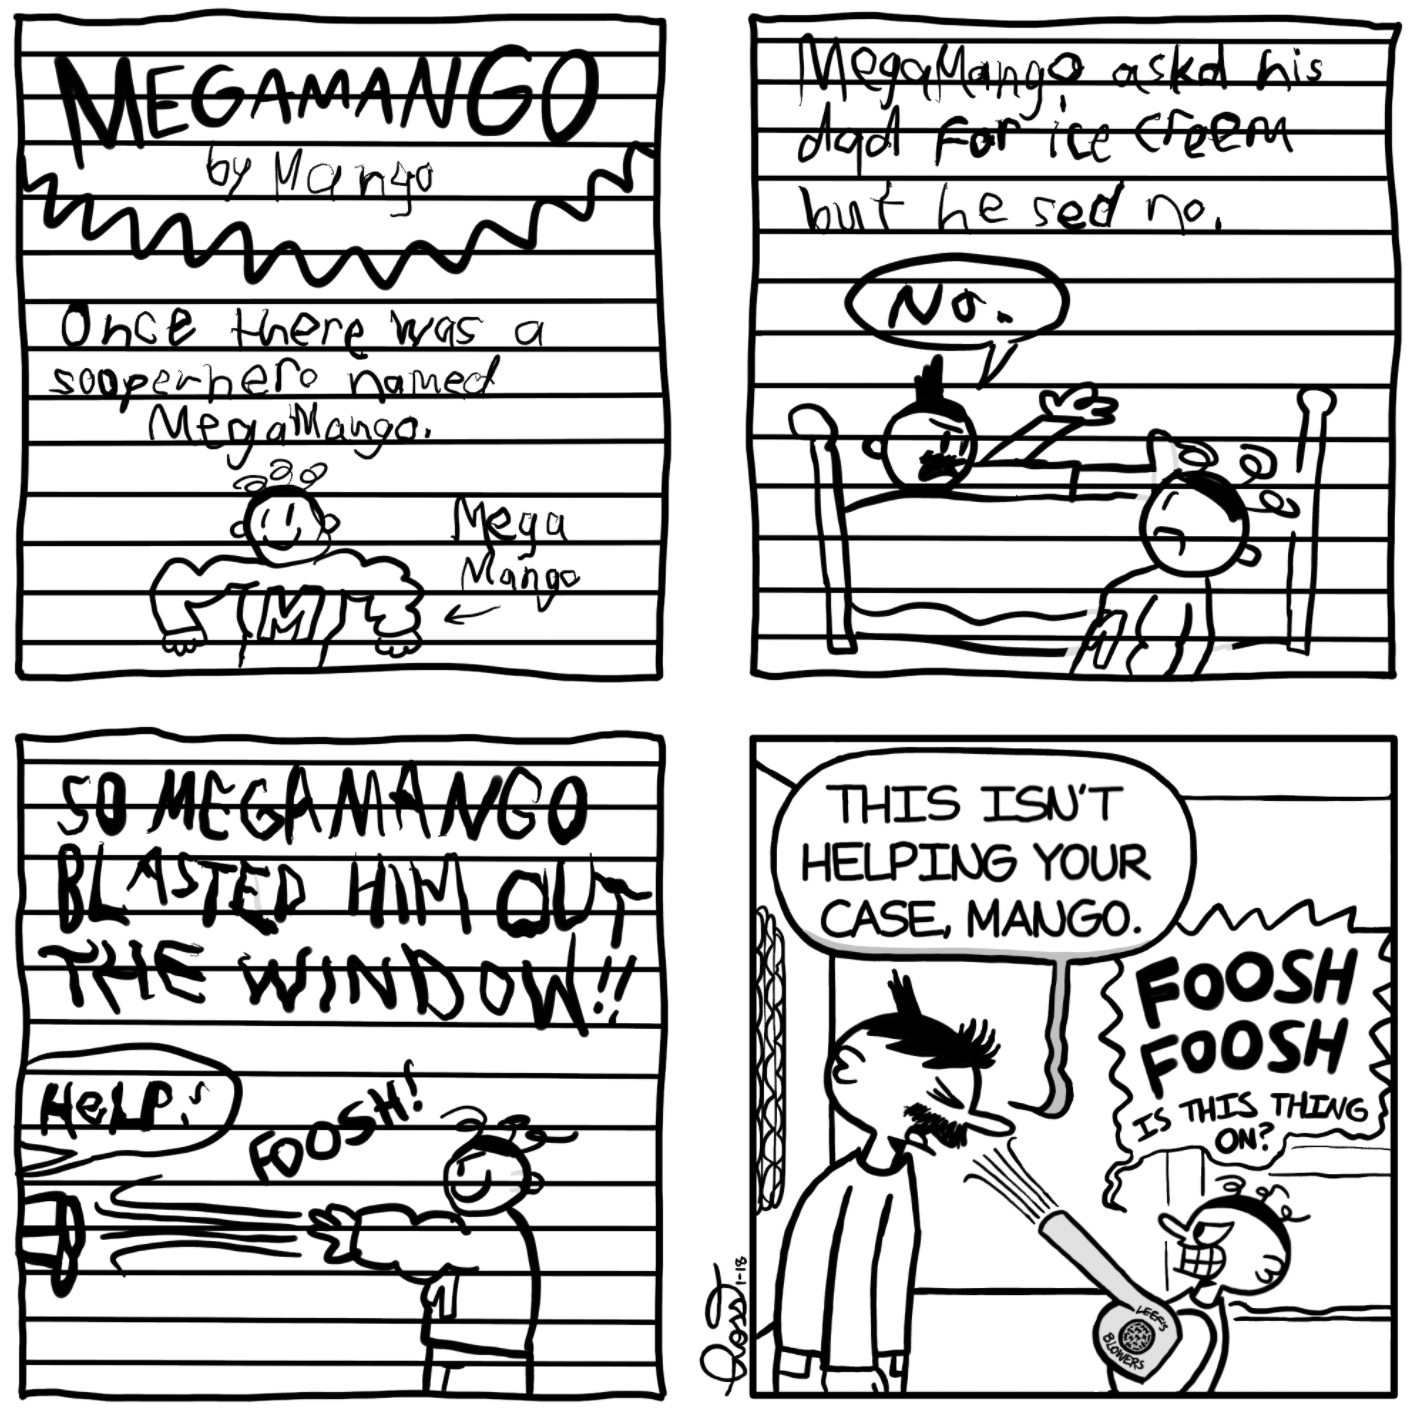 MEGAMANGO
by Mango
Once there was a
sooperhero named
MegaMango.
Mega
Mango
M
MegaMango askd his
dad For ice creem
but he sed no.
No.
SO MEGAMANGO
BLASTED HIM OUT
THE WINDOW!!
HELP!
FOOSH!
M
THIS ISN'T
HELPING YOUR
CASE, MANGO.
FOOSH
FOOSH
IS THIS THING
ON?
LEEF'S
BLOWERS
1-18